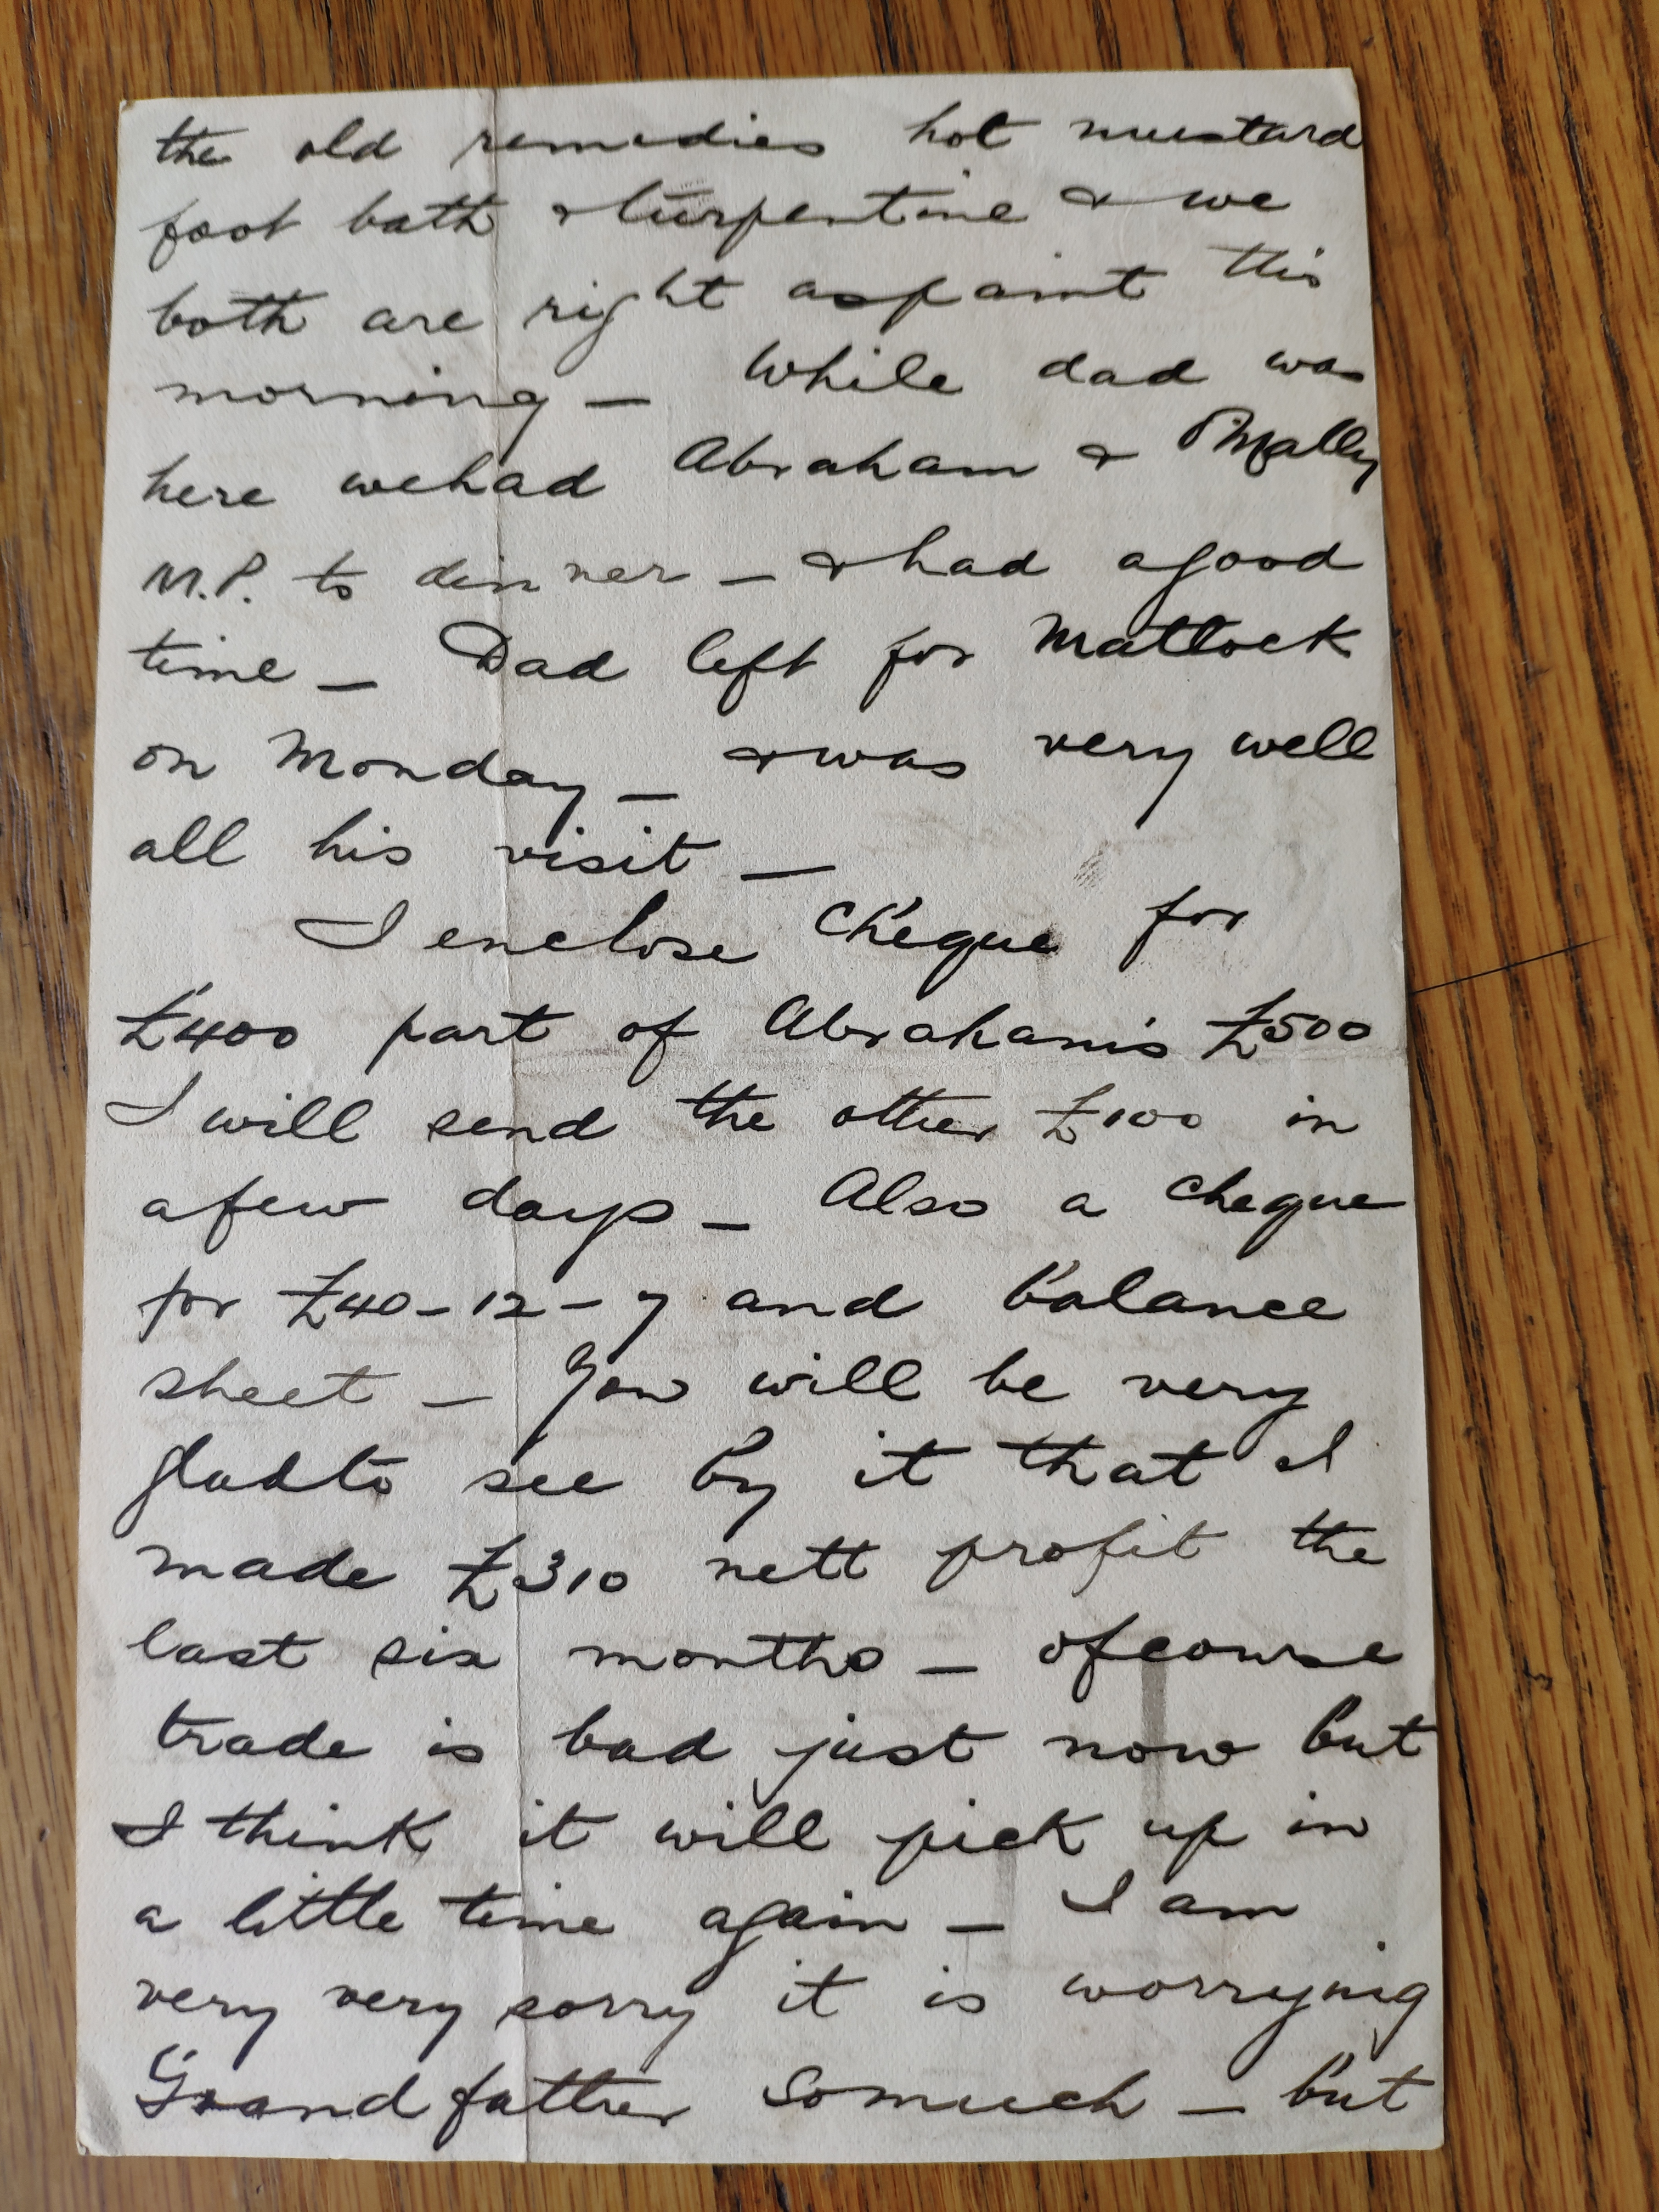 the old remedies hot mustard
foot bath & turpentine & we
both are right as paint this
morning — While dad was
here we had Abraham & O'Mally
M.P. to dinner — & had a good
time — Dad left for Matlock
on Monday — & was very well
all his visit —
I enclose Cheque for
£400 part of Abraham's £500
I will send the other £100 in
a few days — Also a cheque
for £40-12-7 and balance
sheet — You will be very
glad to see by it that I
made £310 nett profit the
last six months — of course
trade is bad just now but
I think it will pick up in
a little time again — I am
very very sorry it is worrying
Grandfather so much — but